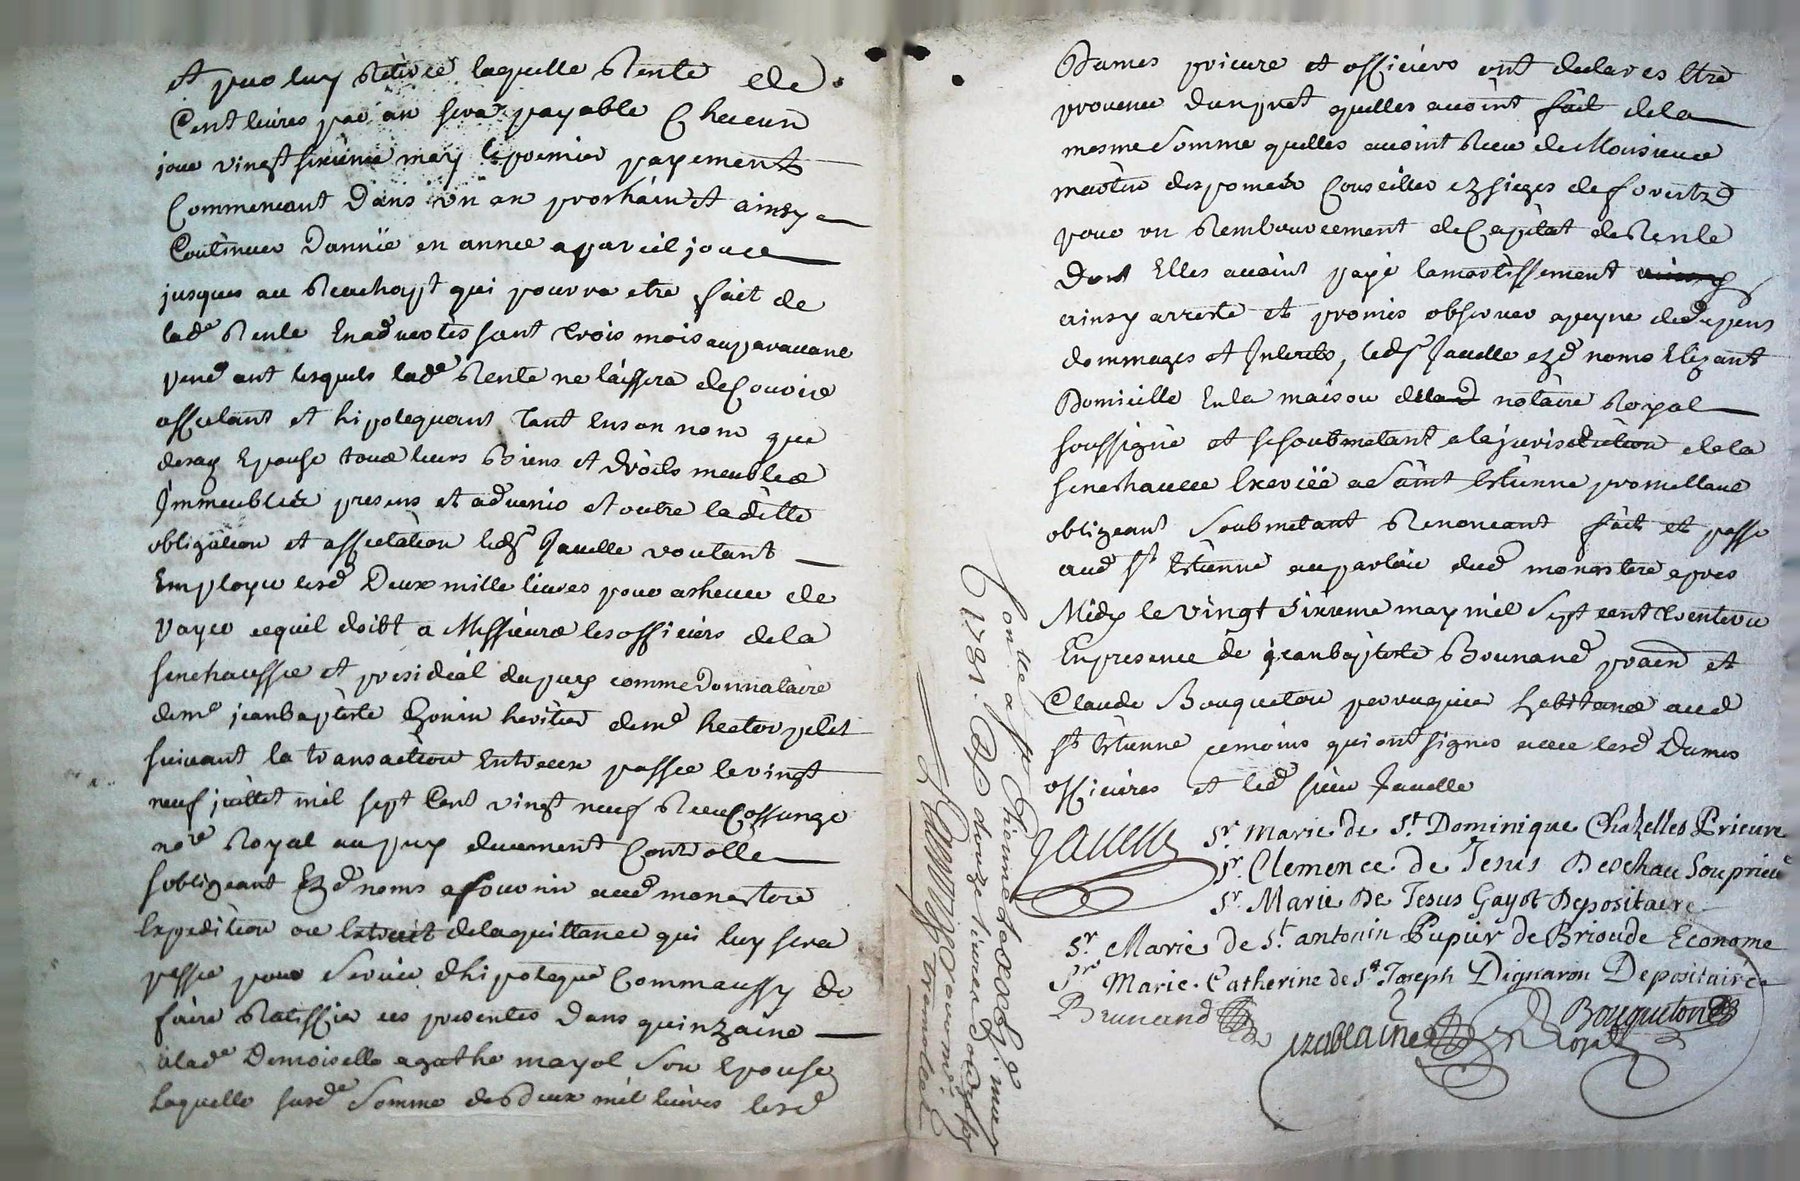 et par luy retirée laquelle Rente de
Cent livres par an sera payable Chacun
jour vingt sixieme may le premier payement
Commencant Dans un an prochain et ainsy
Continuer Dannée en année a pareil jour
jusques au Reachapt qui pourra etre fait de
lade Rente En advertissant trois mois auparavant
pendant lesquels lade Rente ne laissera de Courir
affectant et hipotequant Tant En son nom que
de son Epouse tous leurs Biens et Droits meubles
Immeubles presens et advenir et outre laditte
obligation et affectation ledt Javelle voulant
Employer lesd Deux mille livres pour achever de
payer ce quil doibt a Messieurs les officiers de la
senechaussee et presidial du puy comme Donnataire
de me jean baptiste Gonin heritier de me hector petit
suivant la transaction Entreeux passée le vingt
neuf juillet mil sept Cent vingt neuf Reçeu
nore Royal au puy duement Controllé
sobligeant Ezd noms a fournir aud monastere
Expedition ou Extrait de la quittance qui luy sera
passée pour Servir dhipoteque Comme aussy de
faire Ratiffier ces presentes Dans quinzaine
a lade Demoiselle agathe mayol Son Epouse
Laquelle susde Somme de Deux mil livres lesd
Dames prieure et officieres ont declarés Etre
provenue dun pret quelles avoint fait de la
mesme Somme quelles avoint Reeu de Monsieur
Conseiller ez sieges de forest
pour un Rembourcement de Capital de Rente
Dont Elles avoint payé lamortissement
ainsy arresté et promis observer a peyne de depens
dommages et Interets, ledt Javelle ezd noms Elizant
Domicille En la maison du notaire Royal
soussigné et se soubmetant a la jurisdiction de la
senechaucee Exercée a Saint Etienne promettant
obligeant Soubmetant Renoncant fait et passé
aud St Etienne au parloir dud monastere apres
Midy le vingt sixieme may mil Sept cent trente un
En presence de jean baptiste Brunand et
Claude Bouqueton perruquier habitans aud
St Etienne temoins qui ont signes avec lesd Dames
officieres et led sieur Javelle
Javelle
Sr Marie de St Dominique Chazelles Prieure
Sr Clemence de Jesus Deschau Souprieu
Sr Marie De Jesus Gayot Depositaire
Sr Marie de St antonin Pupier de Brioude Econome
Sr Marie Catherine de St Joseph Dignaron Depositaire
Brunand
Bouqueton
Royal
Conlle a St Ethienne le xxxi may
1731. R douze livres